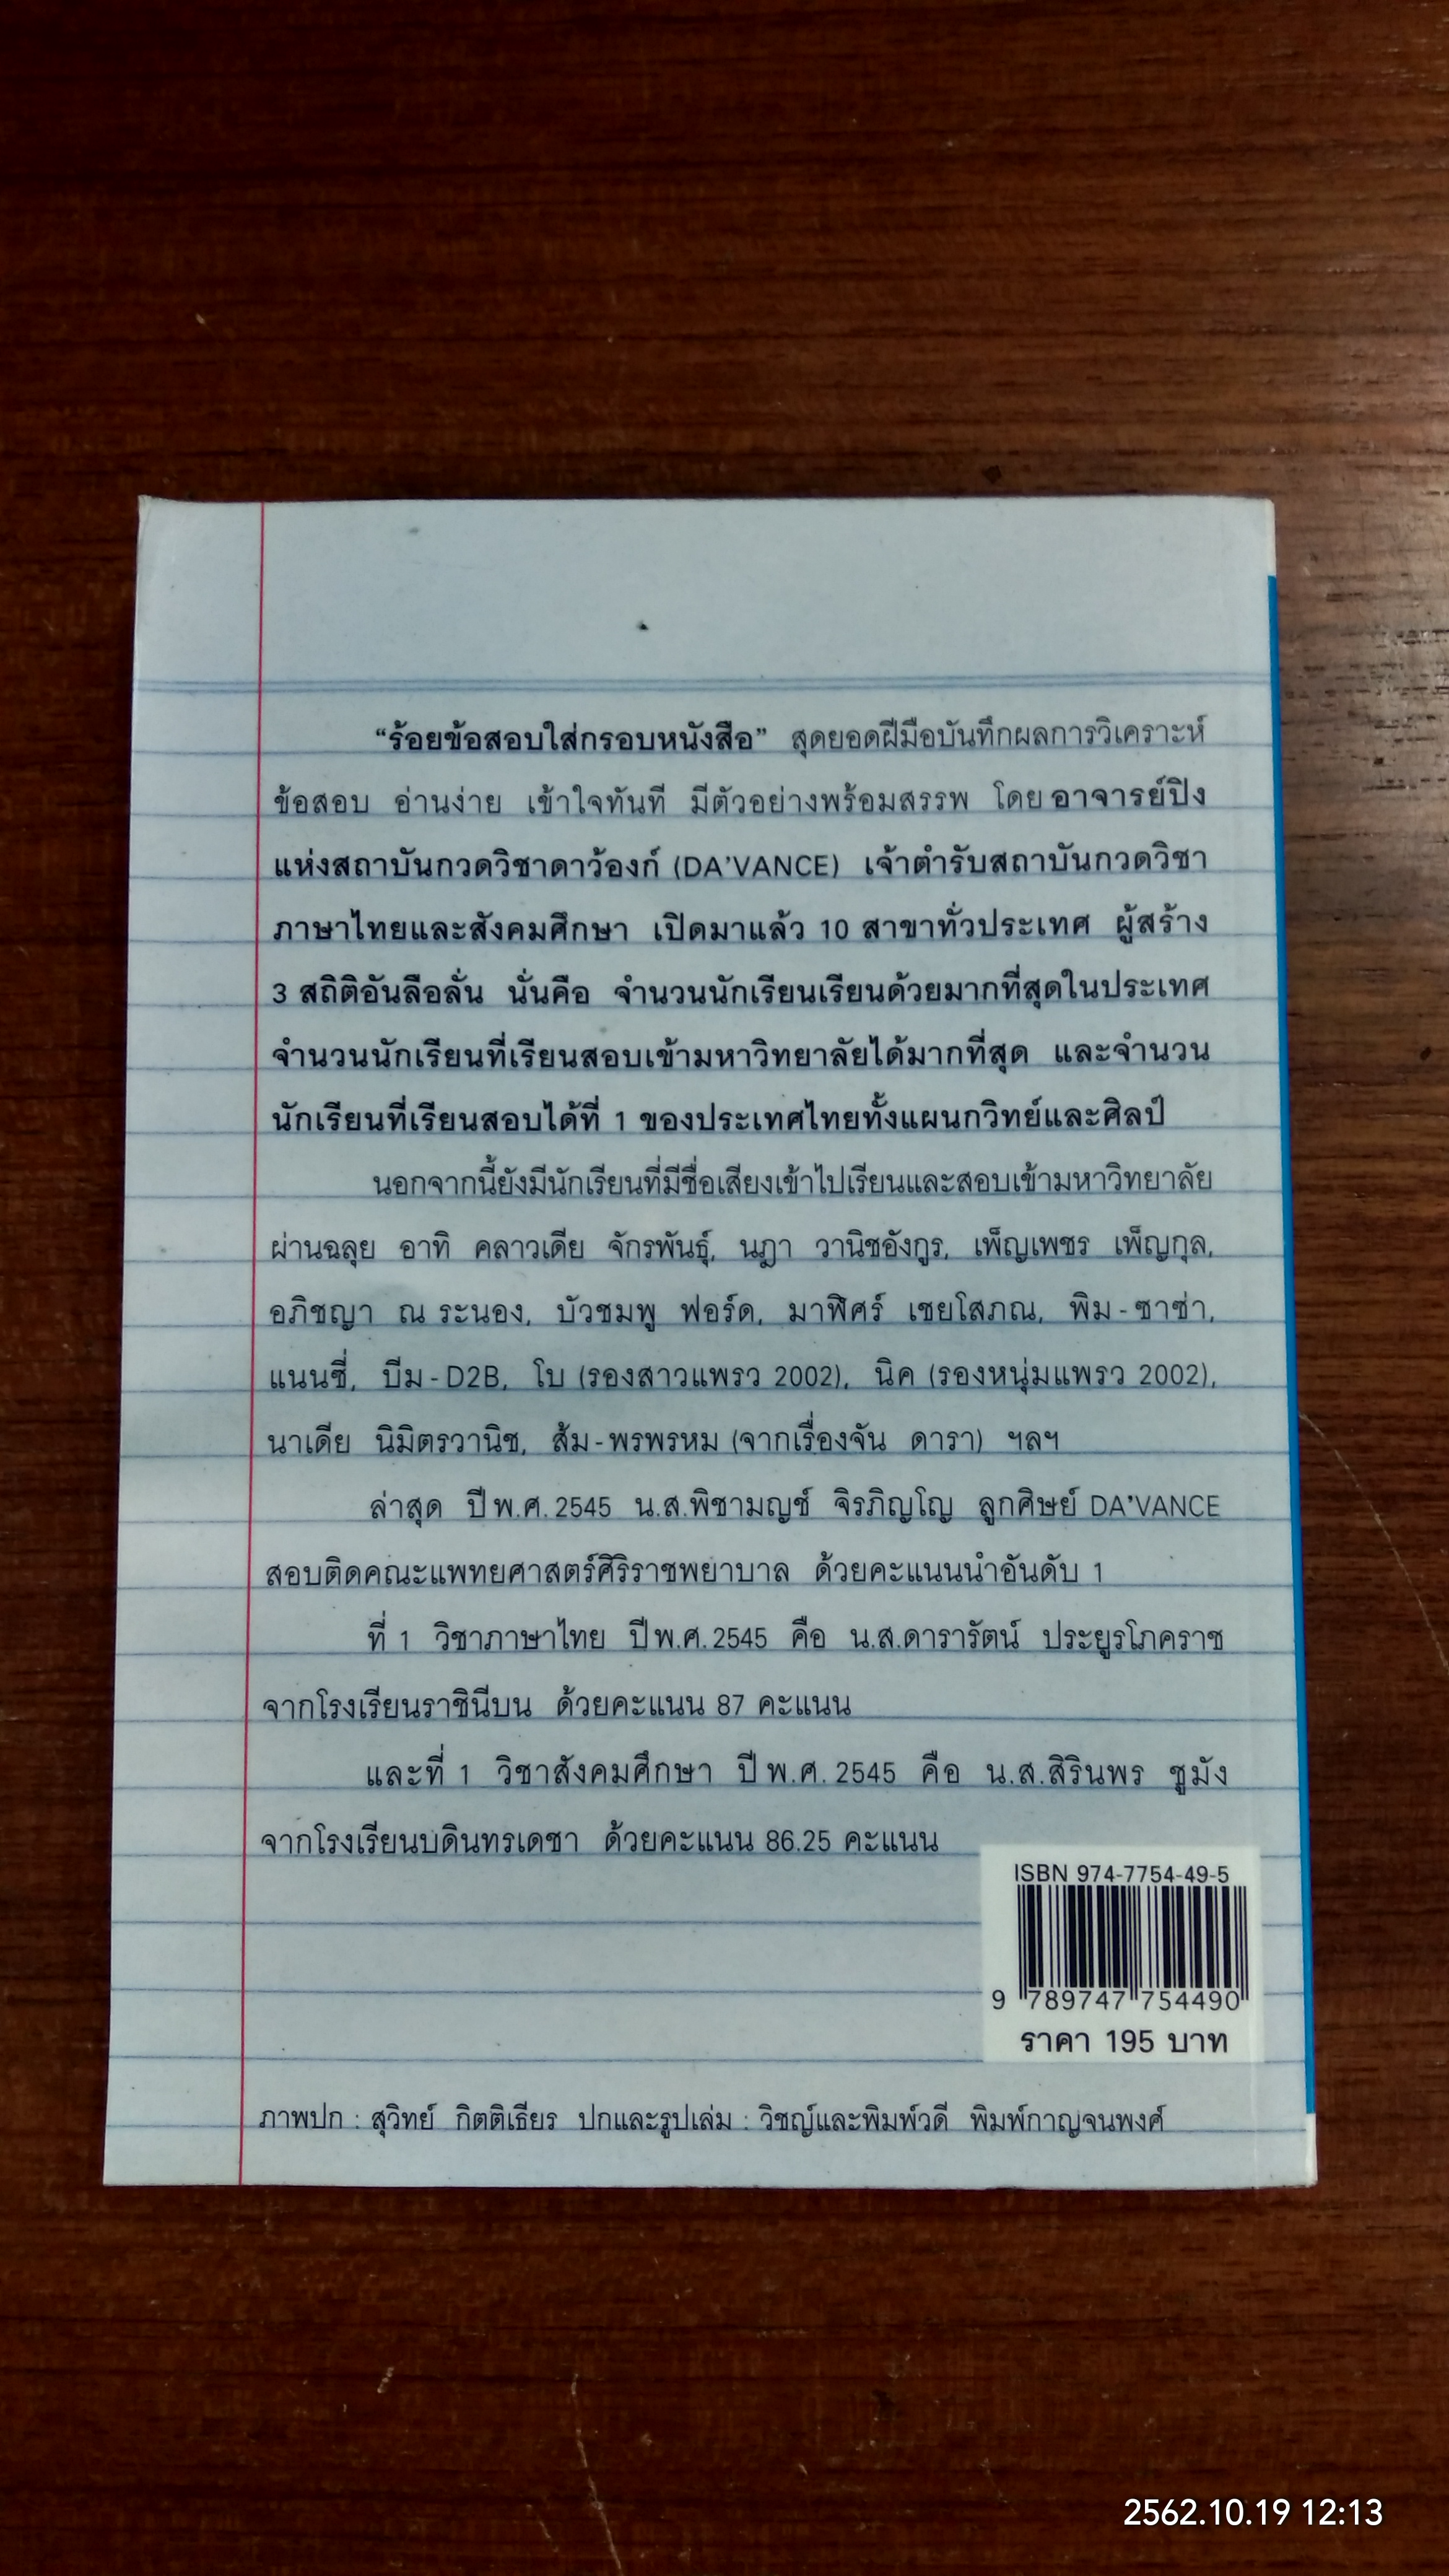 “ร้อยข้อสอบใส่กรอบหนังสือ” สุดยอดฝีมือบันทึกผลการวิเคราะห์
ข้อสอบ อ่านง่าย เข้าใจทันที มีตัวอย่างพร้อมสรรพ โดย อาจารย์ปิง
แห่งสถาบันกวดวิชาดาว้องก์ (DA'VANCE) เจ้าตำรับสถาบันกวดวิชา
ภาษาไทยและสังคมศึกษา เปิดมาแล้ว 10 สาขาทั่วประเทศ ผู้สร้าง
3 สถิติอันลือลั่น นั่นคือ จำนวนนักเรียนเรียนด้วยมากที่สุดในประเทศ
จำนวนนักเรียนที่เรียนสอบเข้ามหาวิทยาลัยได้มากที่สุด และจำนวน
นักเรียนที่เรียนสอบได้ที่ 1 ของประเทศไทยทั้งแผนกวิทย์และศิลป์
นอกจากนี้ยังมีนักเรียนที่มีชื่อเสียงเข้าไปเรียนและสอบเข้ามหาวิทยาลัย
ผ่านฉลุย อาทิ คลาวเดีย จักรพันธุ์, นฎา วานิชอังกูร, เพ็ญเพชร เพ็ญกุล,
อภิชญา ณ ระนอง, บัวชมพู ฟอร์ด, มาฬิศร์ เชยโสภณ, พิม-ซาซ่า,
แนนซี่, บีม-D2B, โบ (รองสาวแพรว 2002), นิค (รองหนุ่มแพรว 2002),
นาเดีย นิมิตรวานิช, ส้ม-พรพรหม (จากเรื่องจัน ดารา) ฯลฯ
ล่าสุด ปีพ.ศ. 2545 น.ส.พิชามญช์ จิรภิญโญ ลูกศิษย์ DA'VANCE
สอบติดคณะแพทยศาสตร์ศิริราชพยาบาล ด้วยคะแนนนำอันดับ 1
ที่ 1 วิชาภาษาไทย ปีพ.ศ. 2545 คือ น.ส.ดารารัตน์ ประยูรโภคราช
จากโรงเรียนราชินีบน ด้วยคะแนน 87 คะแนน
และที่ 1 วิชาสังคมศึกษา ปีพ.ศ. 2545 คือ น.ส.สิรินพร ชูมัง
จากโรงเรียนบดินทรเดชา ด้วยคะแนน 86.25 คะแนน
ISBN 974-7754-49-5
9 789747 754490
ราคา 195 บาท
ภาพปก : สุวิทย์ กิตติเธียร ปกและรูปเล่ม : วิชญ์และพิมพ์วดี พิมพ์กาญจนพงศ์
2562.10.19 12:13